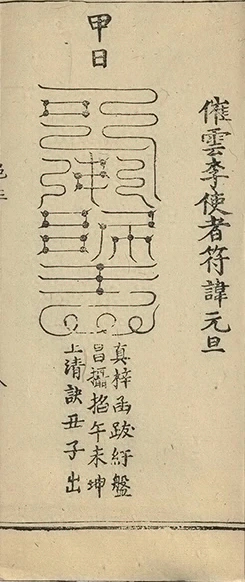 催雲李使者符諱元旦
甲日
真梓岳跋紆盤
昌攝掐午未坤
上清訣丑子出